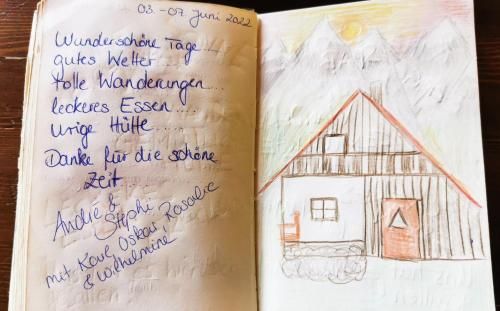 03.-07. Juni 2022
Wunderschöne Tage....
gutes Wetter....
tolle Wanderungen...
leckeres Essen....
urige Hütte.....
Danke für die schöne
Zeit...
André & Stephi
mit Karl, Oskar, Rosalie
& Wilhelmine